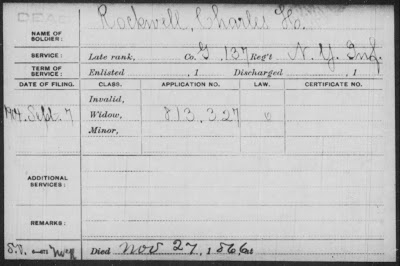 DEAD
Rockwell, Charles H.
NAME OF SOLDIER:
SERVICE: Late rank, Co. G, 137 Reg't N. Y. Inf.
TERM OF SERVICE: Enlisted , 1 Discharged , 1
DATE OF FILING. CLASS. APPLICATION NO. LAW. CERTIFICATE NO.
Invalid,
Sept. 7 Widow, 813.327
Minor,
ADDITIONAL SERVICES:
REMARKS:
Died Nov 27, 186